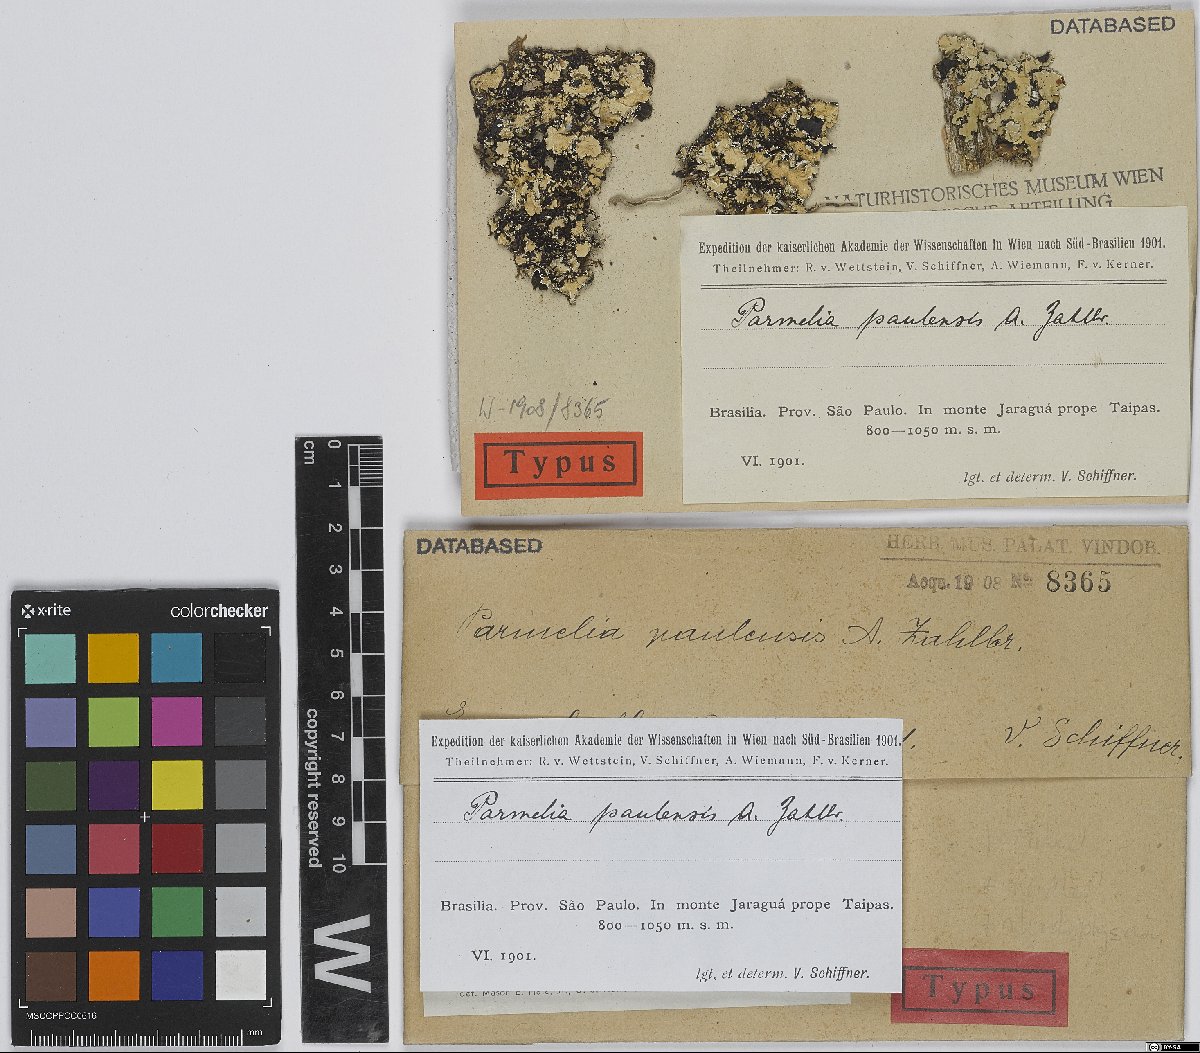 DATABASED
NATURHISTORISCHES MUSEUM WIEN
ABTEILUNG
Expedition der kaiserlichen Akademie der Wissenschaften in Wien nach Süd-Brasilien 1901.
Theilnehmer: R. v. Wettstein, V. Schiffner, A. Wiemann, F. v. Kerner.
Parmelia paulensis A. Zahlbr.
Brasilia. Prov. São Paulo. In monte Jaraguá prope Taipas.
800—1050 m. s. m.
VI. 1901.
lgt. et determ. V. Schiffner.
W-1908/8365
Typus
DATABASED
HERB. MUS. PALAT. VINDOB.
Acqu. 19 08 No 8365
Parmelia paulensis A. Zahlbr.
V. Schiffner.
Expedition der kaiserlichen Akademie der Wissenschaften in Wien nach Süd-Brasilien 1901.
Theilnehmer: R. v. Wettstein, V. Schiffner, A. Wiemann, F. v. Kerner.
Parmelia paulensis A. Zahlbr.
Brasilia. Prov. São Paulo. In monte Jaraguá prope Taipas.
800—1050 m. s. m.
VI. 1901.
lgt. et determ. V. Schiffner.
Typus
cm
0
1
2
3
4
5
6
7
8
9
10
copyright reserved
W
x-rite
colorchecker
MSCCPPCC0616
mm